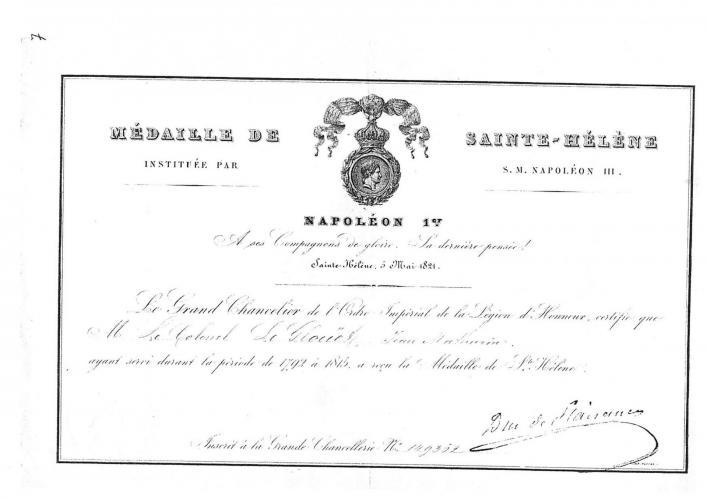 MÉDAILLE DE SAINTE-HÉLÈNE
INSTITUÉE PAR S. M. NAPOLÉON III.
NAPOLÉON 1er
A ses Compagnons de gloire. Sa dernière pensée!
Sainte-Hélène, 5 Mai 1821.
Le Grand Chancelier de l'Ordre Impérial de la Légion d'Honneur, certifie que
M. Le Colonel Le Jean Mathurin
ayant servi durant la période de 1792 à 1815, a reçu la Médaille de Ste Hélène.
Duc de
Inscrit à la Grande Chancellerie No 149352